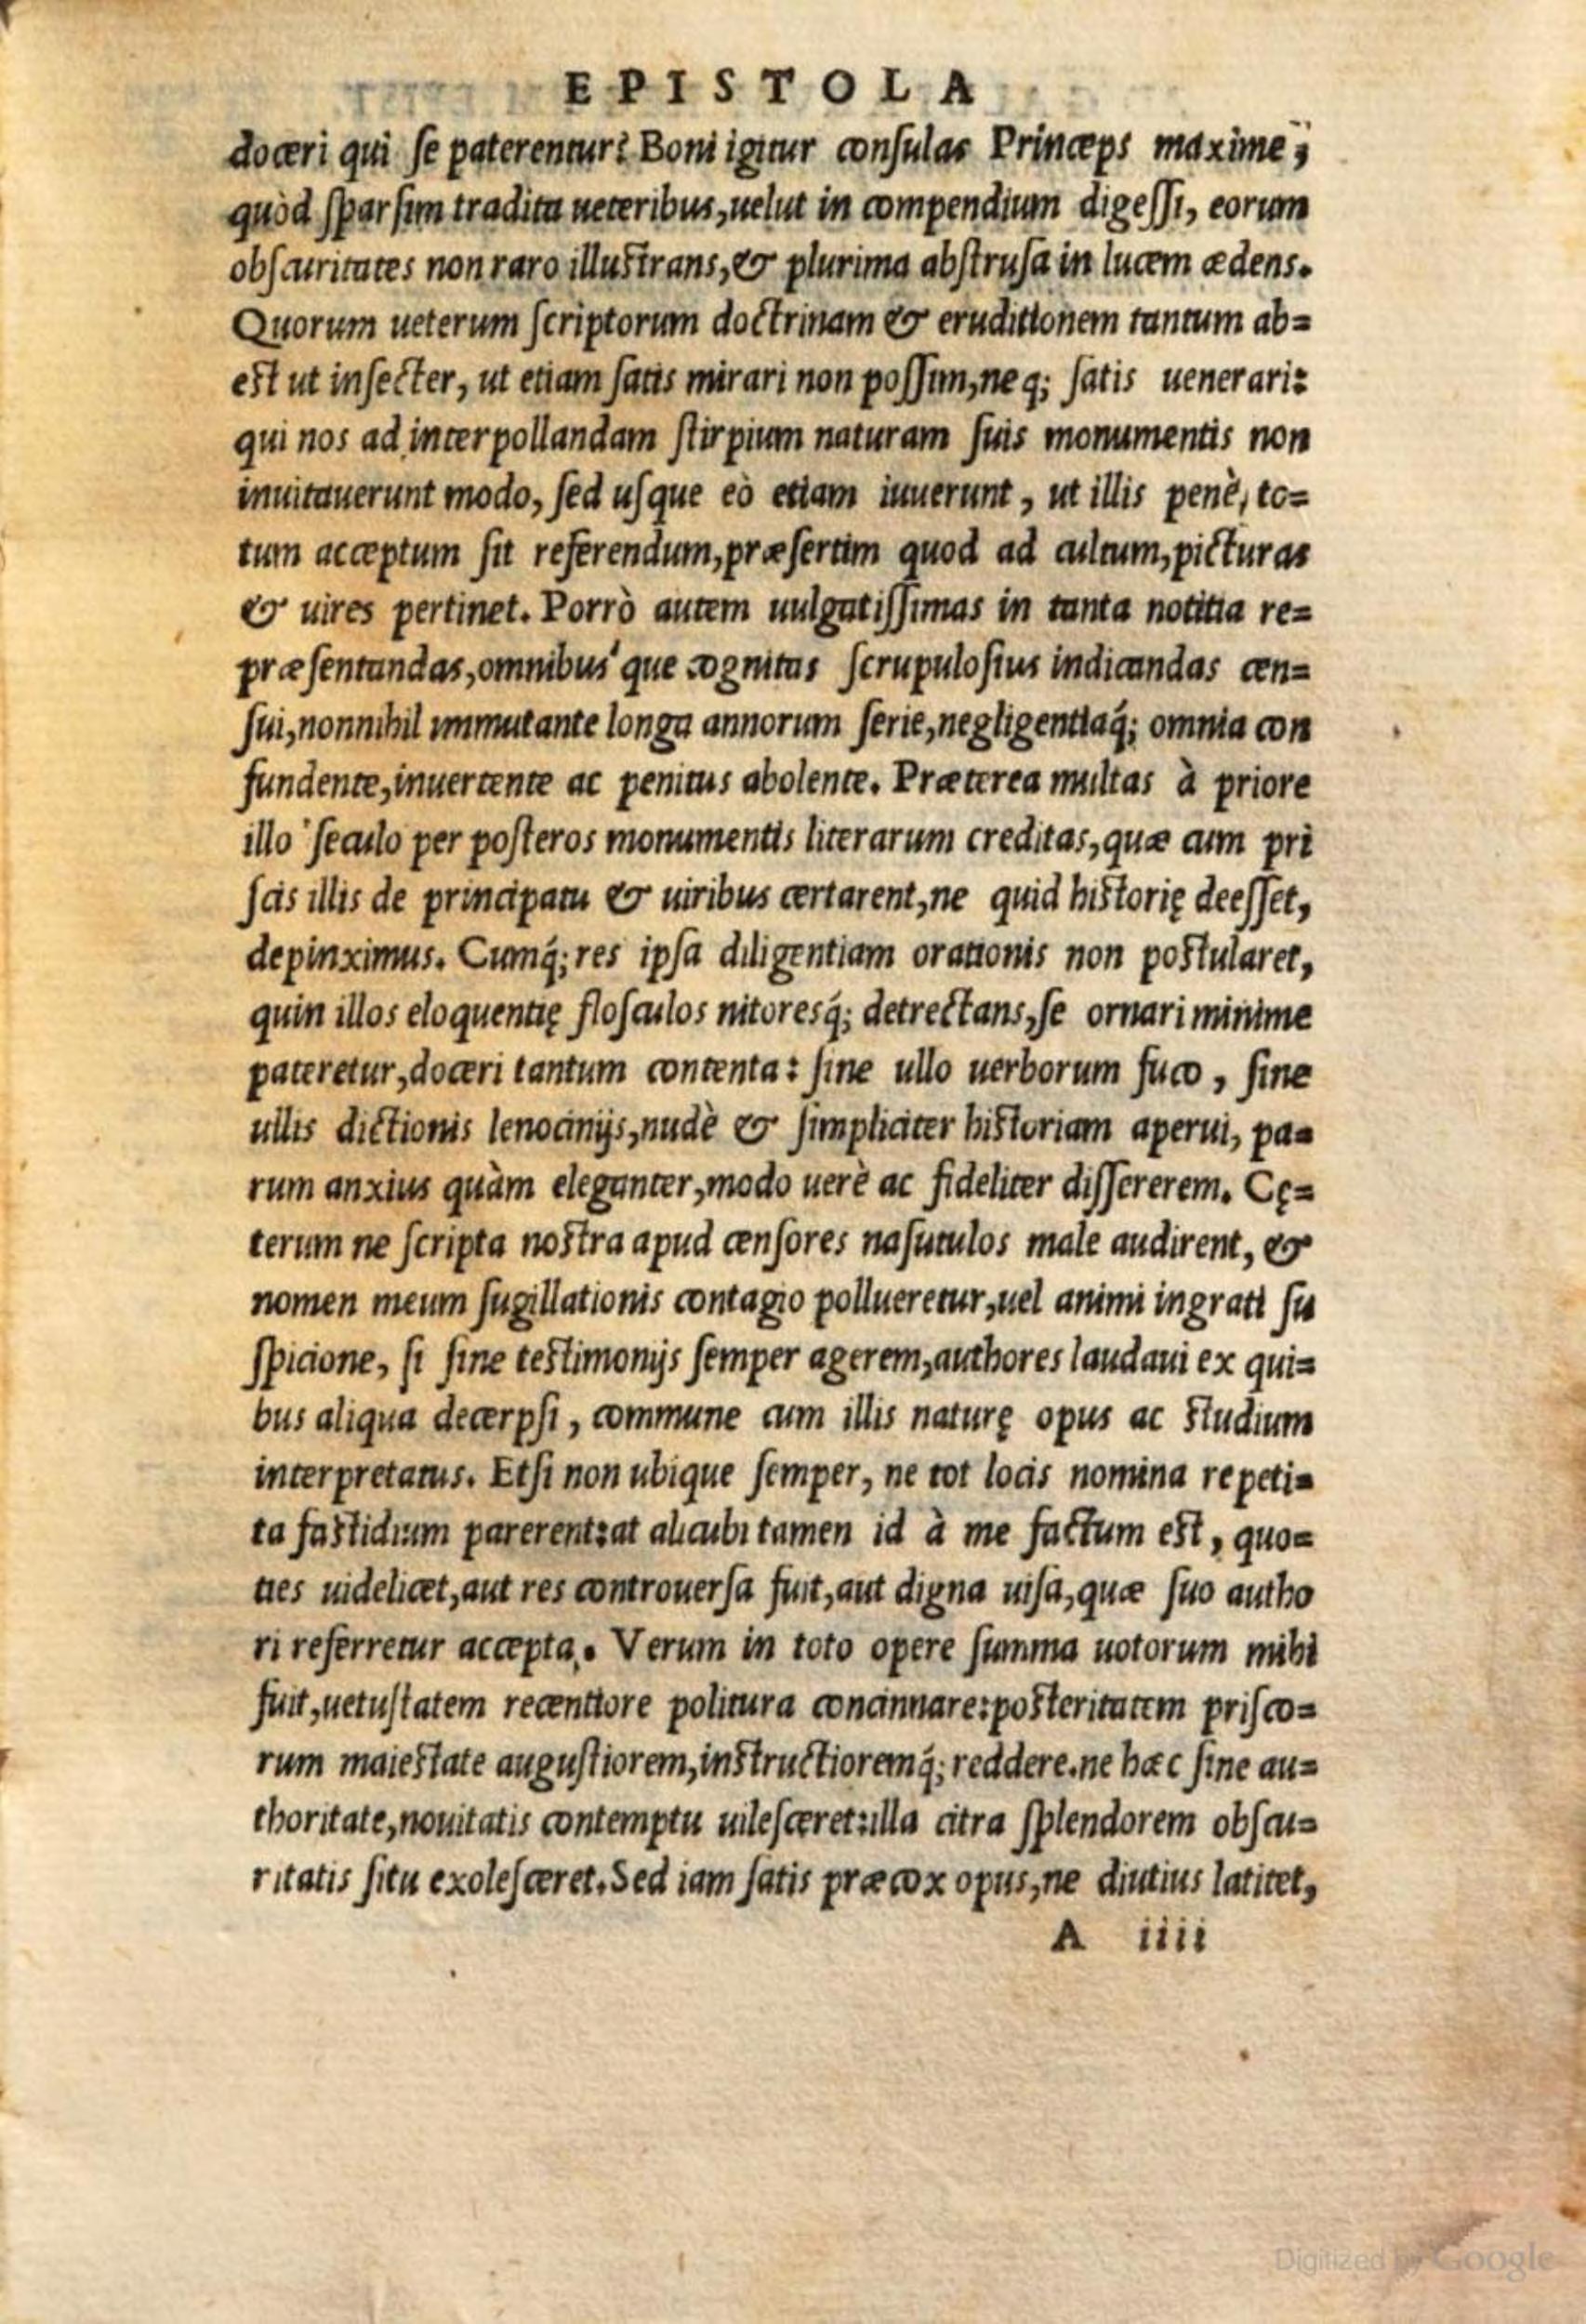 EPISTOLA
doceri qui se paterentur? Boni igitur consulas Princeps maxime,
quòd sparsim tradita ueteribus, uelut in compendium digessi, eorum
obscuritates non raro illustrans, & plurima abstrusa in lucem ædens.
Quorum ueterum scriptorum doctrinam & eruditionem tantum ab=
est ut insecter, ut etiam satis mirari non possim, neq; satis uenerari:
qui nos ad interpollandam stirpium naturam suis monumentis non
inuitauerunt modo, sed usque eò etiam iuuerunt, ut illis penè, to=
tum acceptum sit referendum, præsertim quod ad cultum, picturas
& uires pertinet. Porrò autem uulgatissimas in tanta notitia re=
præsentandas, omnibus'que cognitas scrupulosius indicandas cen=
sui, nonnihil immutante longa annorum serie, negligentiaq́; omnia con
fundente, inuertente ac penitus abolente. Præterea multas à priore
illo seculo per posteros monumentis literarum creditas, quæ cum pri
scis illis de principatu & uiribus certarent, ne quid historię deesset,
depinximus. Cumq́; res ipsa diligentiam orationis non postularet,
quin illos eloquentię flosculos nitoresq́; detrectans, se ornari minime
pateretur, doceri tantum contenta: sine ullo uerborum fuco, sine
ullis dictionis lenocinijs, nudè & simpliciter historiam aperui, pa=
rum anxius quàm eleganter, modo uerè ac fideliter dissererem. Cę=
terum ne scripta nostra apud censores nasutulos male audirent, &
nomen meum sugillationis contagio pollueretur, uel animi ingrati su
spicione, si sine testimonijs semper agerem, authores laudaui ex qui=
bus aliqua decerpsi, commune cum illis naturę opus ac studium
interpretatus. Etsi non ubique semper, ne tot locis nomina repeti=
ta fastidium parerent: at alicubi tamen id à me factum est, quo=
ties uidelicet, aut res controuersa fuit, aut digna uisa, quæ suo autho
ri referretur accepta. Verum in toto opere summa uotorum mihi
fuit, uetustatem recentiore politura concinnare: posteritatem prisco=
rum maiestate augustiorem, instructioremq́; reddere. ne hæc sine au=
thoritate, nouitatis contemptu uilesceret: illa citra splendorem obscu=
ritatis situ exolesceret. Sed iam satis præcox opus, ne diutius latitet,
A iiii
Digitized by Google